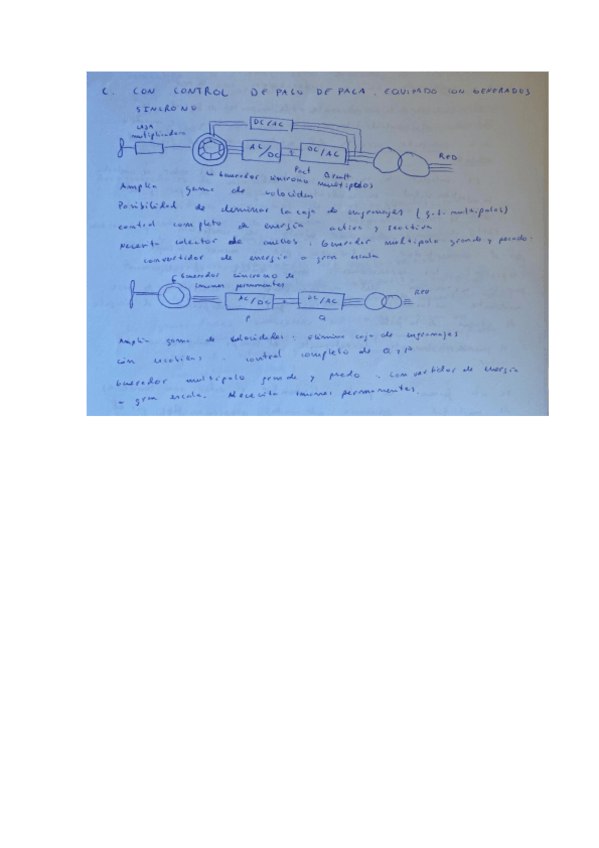 C. CON CONTROL DE PASO DE PALA. EQUIPADO CON GENERADOR
SÍNCRONO
caja
multiplicadora
DC/AC
AC/DC
DC/AC
RED
Pact
Generador síncrono multipolos
Amplia gama de velocidad
Posibilidad de eliminar la caja de engranajes (g.s. multipolos)
control completo de energía activa y reactiva
Necesita colector de anillos. Generador multipolo grande y pesado.
convertidor de energía a gran escala
Generador síncrono de
imanes permanentes
AC/DC
DC/AC
RED
P
Q
Amplia gama de velocidades. elimina caja de engranajes
sin escobillas. control completo de Q y P
Generador multipolo grande y pesado. convertidor de energía
a gran escala. Necesita imanes permanentes.